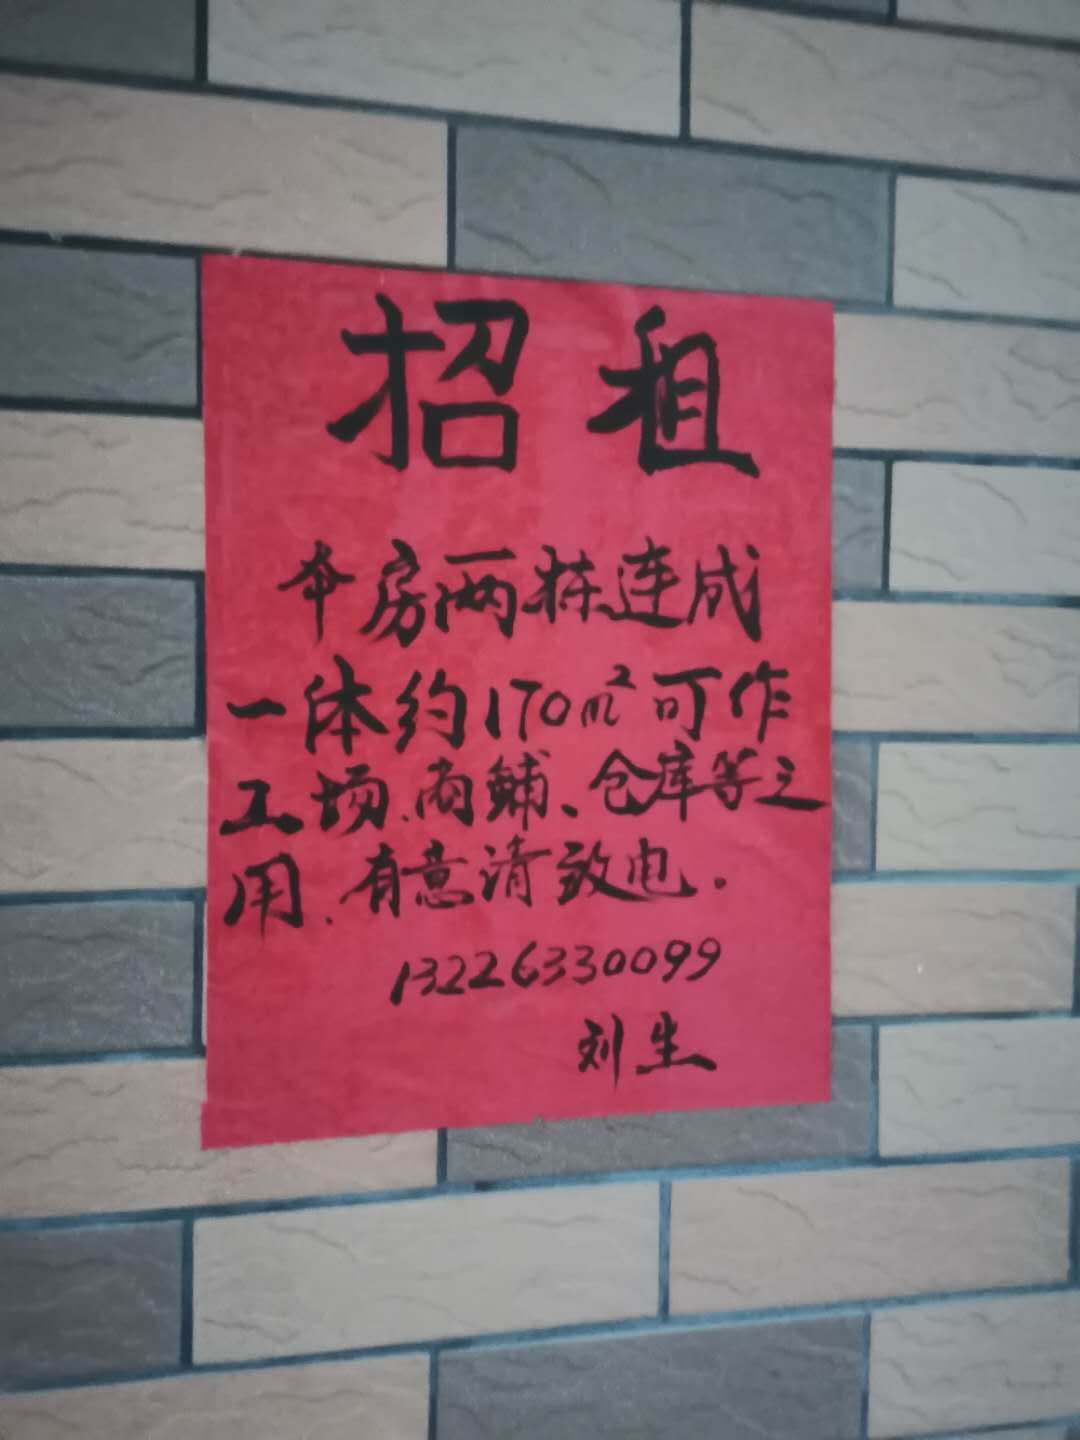 招租
本房两栋连成
一体约170m²可作
工场、商铺、仓库等之
用、有意请致电.
13226330099
刘生